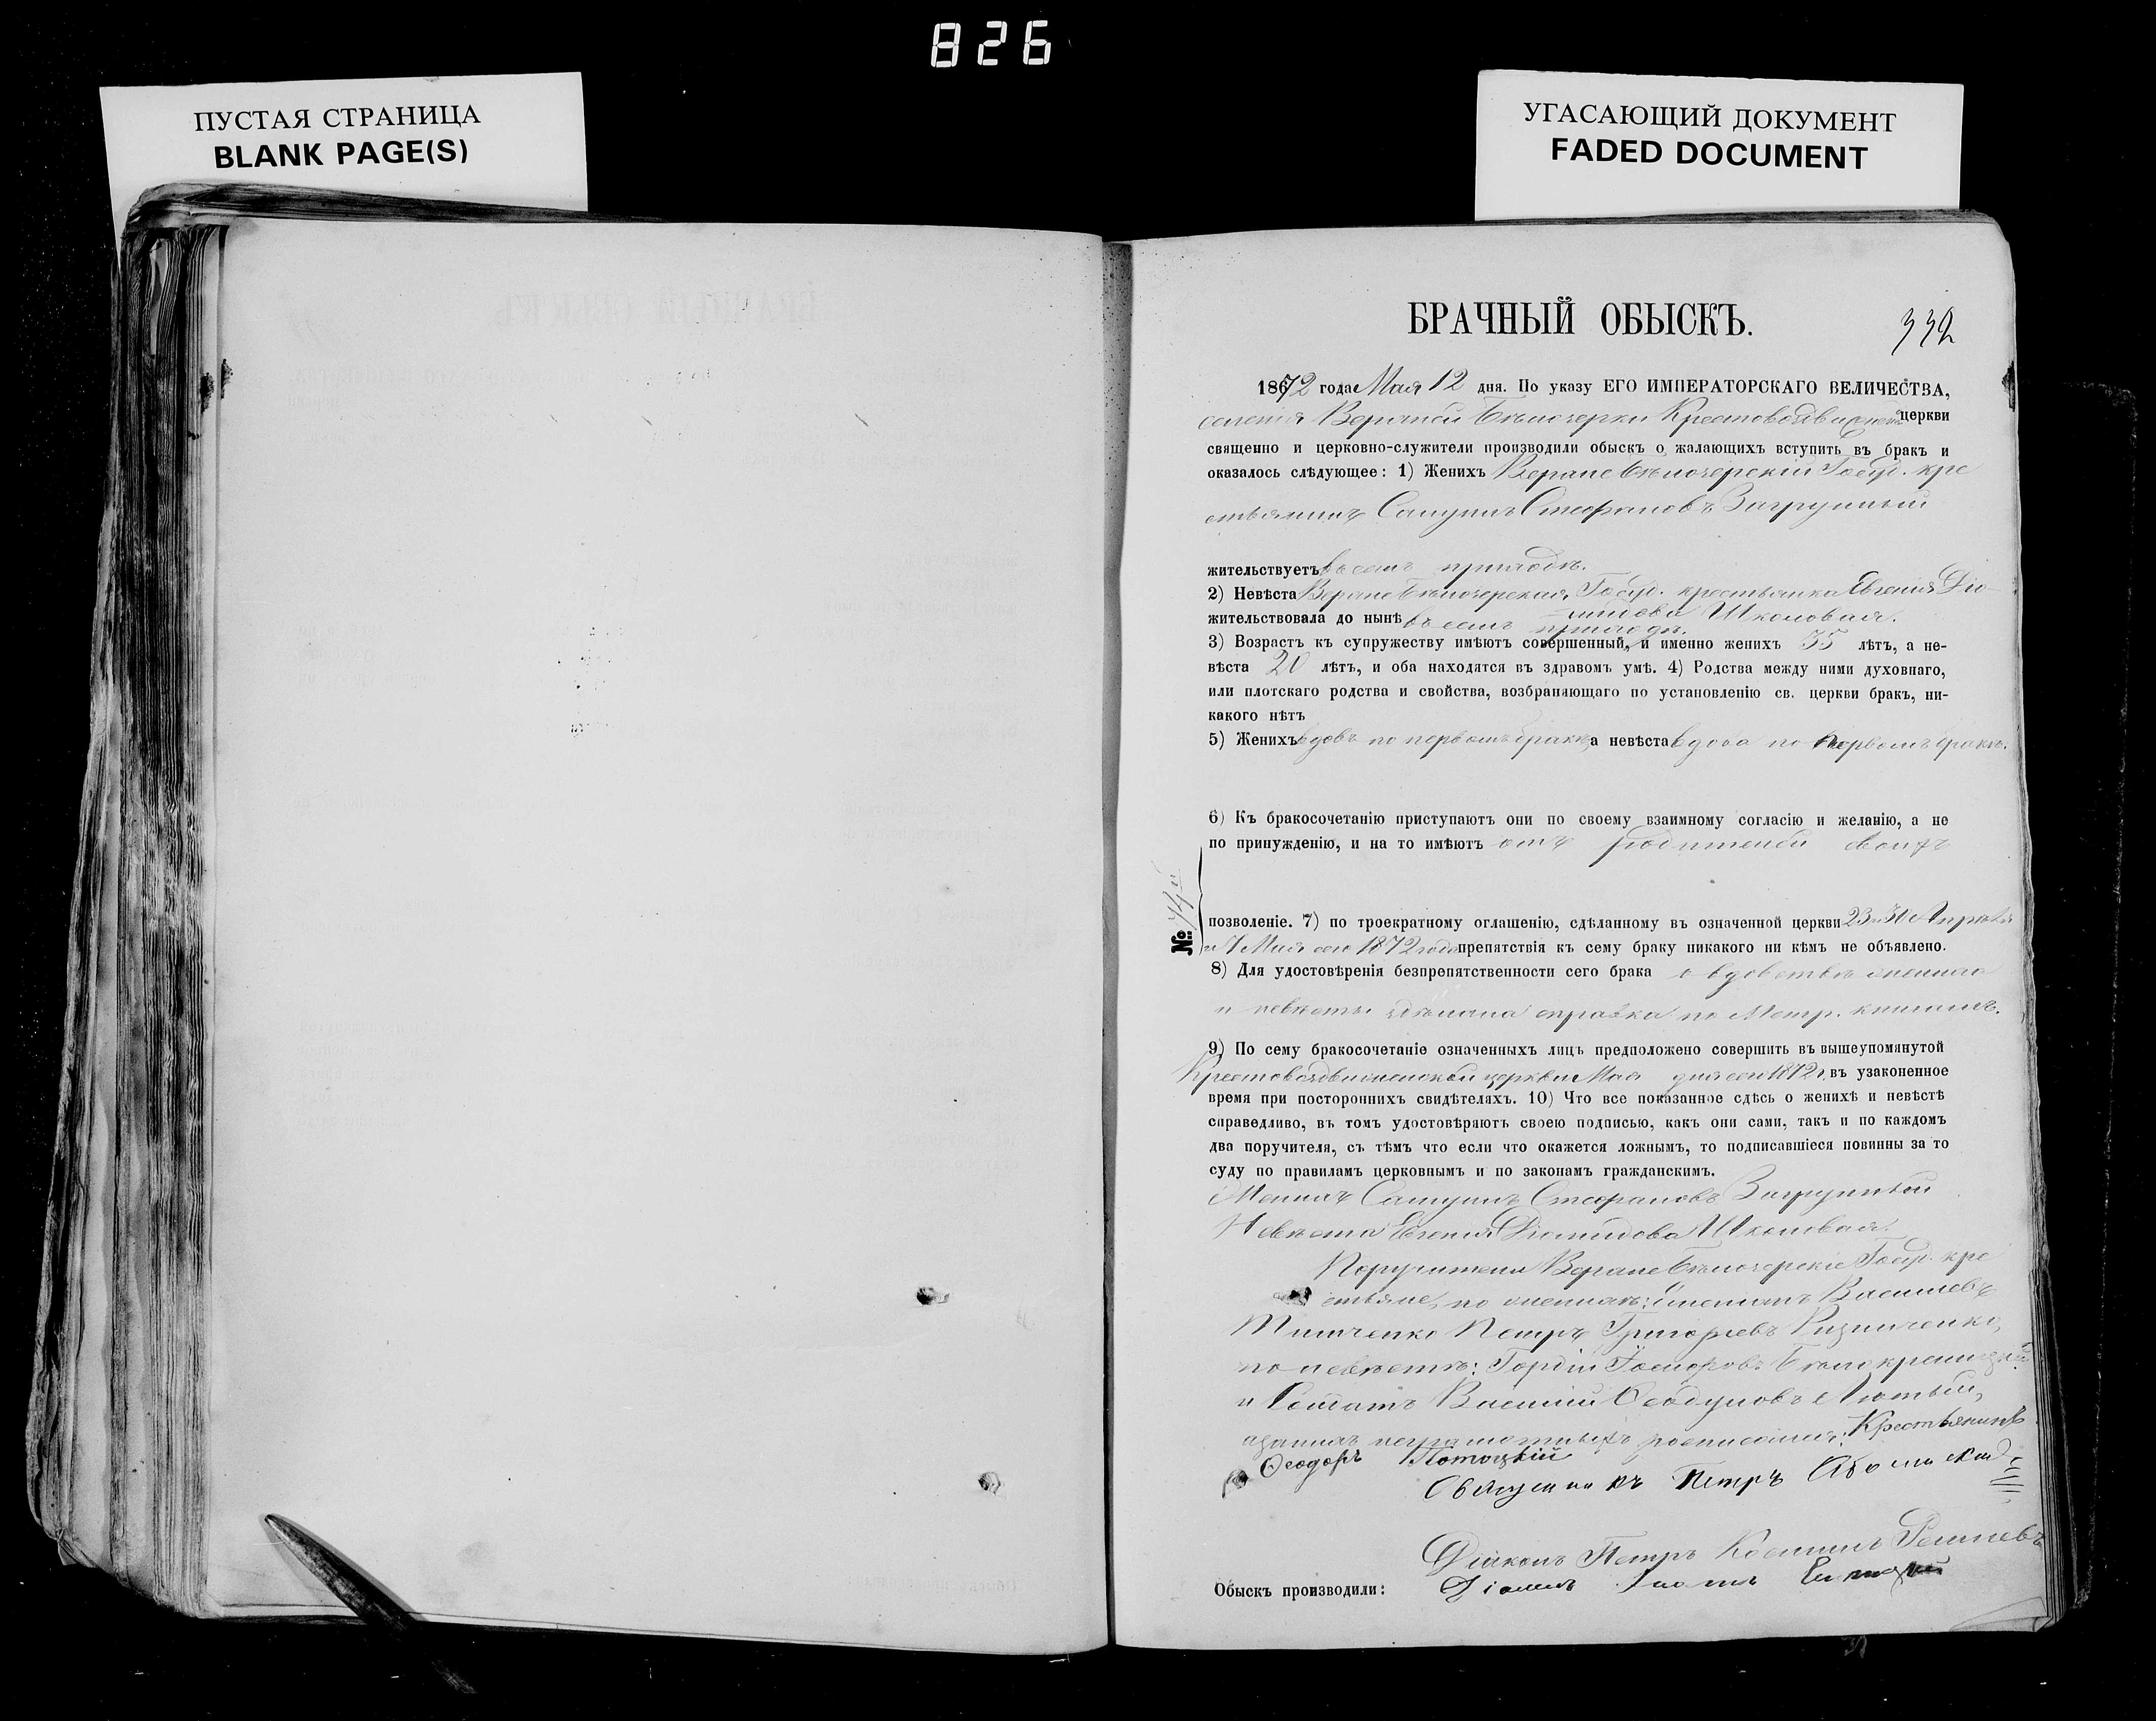 826
ПУСТАЯ СТРАНИЦА
BLANK PAGE(S)
УГАСАЮЩИЙ ДОКУМЕНТ
FADED DOCUMENT
БРАЧНЫЙ ОБЫСКЪ.
332
1872 года Мая 12 дня. По указу ЕГО ИМПЕРАТОРСКАГО ВЕЛИЧЕСТВА,
селенія Верхней Бѣлозерки Крестовоздвиженской церкви
священно и церковно-служители производили обыскъ о жалающихъ вступить въ бракъ и
оказалось слѣдующее: 1) Женихъ Верхнебѣлозерскій Госуд. кре
стьянинъ Самуилъ Стефановъ Загрунный
жительствуетъ въ семъ приходѣ.
2) Невѣста Верхнебѣлозерская Госуд. крестьянка Евгенія Діо-
мидова Школовая.
жительствовала до нынѣ въ семъ приходѣ.
3) Возрастъ къ супружеству имѣютъ совершенный, и именно женихъ 35 лѣтъ, а не-
вѣста 20 лѣтъ, и оба находятся въ здравомъ умѣ. 4) Родства между ними духовнаго,
или плотскаго родства и свойства, возбраняющаго по установленію св. церкви бракъ, ни-
какого нѣтъ
5) Женихъ вдовъ по первомъ бракѣ, а невѣста вдова по первомъ бракѣ.
6) Къ бракосочетанію приступаютъ они по своему взаимному согласію и желанію, а не
по принужденію, и на то имѣютъ отъ родителей своихъ
№
позволеніе. 7) по троекратному оглашенію, сдѣланному въ означенной церкви 23 и 30 Апрѣля
и 7 Мая сего 1872 года препятствія къ сему браку никакого ни кѣмъ не объявлено.
8) Для удостовѣренія безпрепятственности сего брака о вдовствѣ жениха
и невѣсты сдѣлана справка по Метр. книгамъ.
9) По сему бракосочетаніе означенныхъ лицъ предположено совершить въ вышеупомянутой
Крестовоздвиженской церкви Мая дня сего 1872 г. въ узаконенное
время при постороннихъ свидѣтеляхъ. 10) Что все показанное сдѣсь о женихѣ и невѣстѣ
справедливо, въ томъ удостовѣряютъ своею подписью, какъ они сами, такъ и по каждомъ
два поручителя, съ тѣмъ что если что окажется ложнымъ, то подписавшіеся повинны за то
суду по правиламъ церковнымъ и по законамъ гражданскимъ.
Женихъ Самуилъ Стефановъ Загрунный
Невѣста Евгенія Діомидова Школовая.
Поручители Верхнебѣлозерскіе Госуд. кре
стьяне, по женихѣ: Василіевъ
Тимченко Петръ Григорьевъ Ризниченко,
по невѣстѣ: Гордій
и Солдатъ Василій Лютый,
а за нихъ неграмотныхъ росписался: Крестьянинъ
Ѳеодоръ Потоцкій
Священникъ Петръ
Діаконъ Петръ Косминъ
Обыскъ производили: